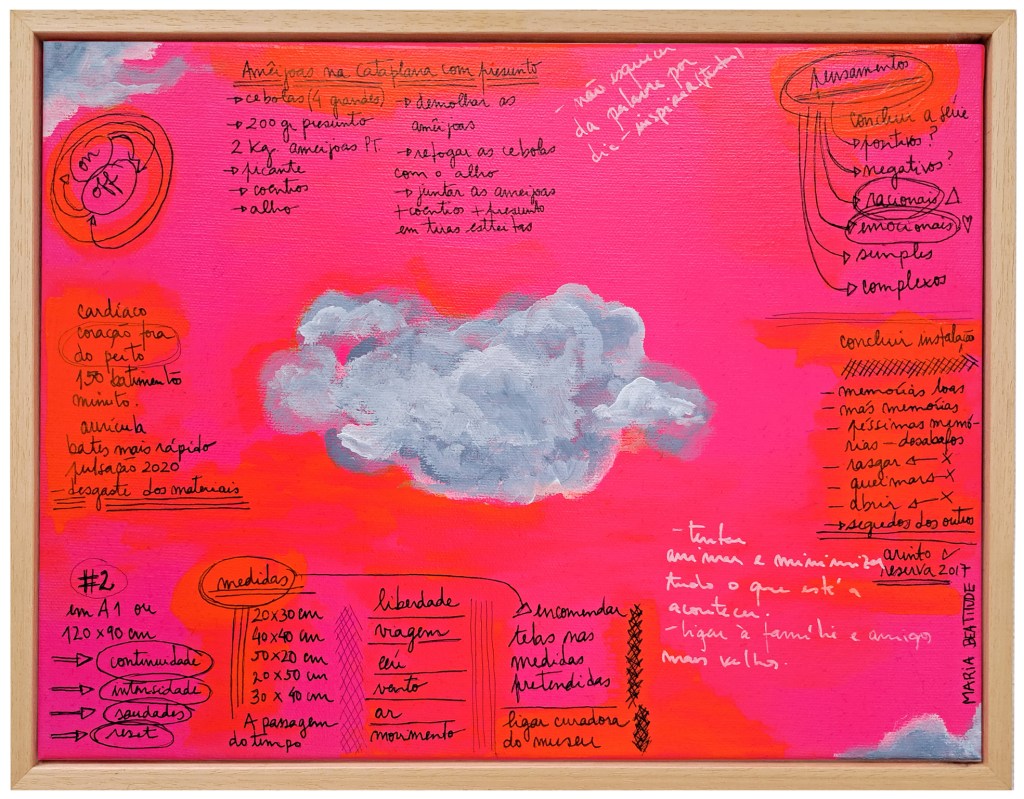 Amêijoas na Cataplana com presunto
→ cebolas (4 grandes)
→ 200 gr presunto
2 Kg. ameijoas PT.
→ picante
→ coentros
→ alho
→ demolhar as
amêijoas
→ refogar as cebolas
com o alho
→ juntar as ameijoas
+ coentros + presunto
em tiras estreitas
- não esquecer
da palavra por
dia
pensamentos
concluir a série
positivos?
negativos?
racionais △
emocionais ♡
simples
complexos
on
off
cardíaco
coração fora
do peito
150 batimentos
minuto.
aurícula
bates mais rápido
pulsação 2020
- desgaste dos materiais
concluir instalação
- memórias boas
- más memórias
- péssimas memó-
rias - desabafos
- rasgar ← x
- queimar ← x
- abrir ← x
→ segredos dos outros
arinto ✓
reserva 2017
- tentar
animar e minimizar
tudo o que está a
acontecer.
- ligar à família e amigos
mais velhos.
#2
em A1 ou
120 x 90 cm
⇒ continuidade
⇒ intensidade
⇒ saudades
⇒ reset
medidas
20x30 cm
40x40 cm
50x20 cm
20x50 cm
30 x 40 cm
A passagem
do tempo
liberdade
viagem
céu
vento
ar
movimento
encomendar
telas nas
medidas
pretendidas
ligar curadora
do museu
MARIA BEATITUDE